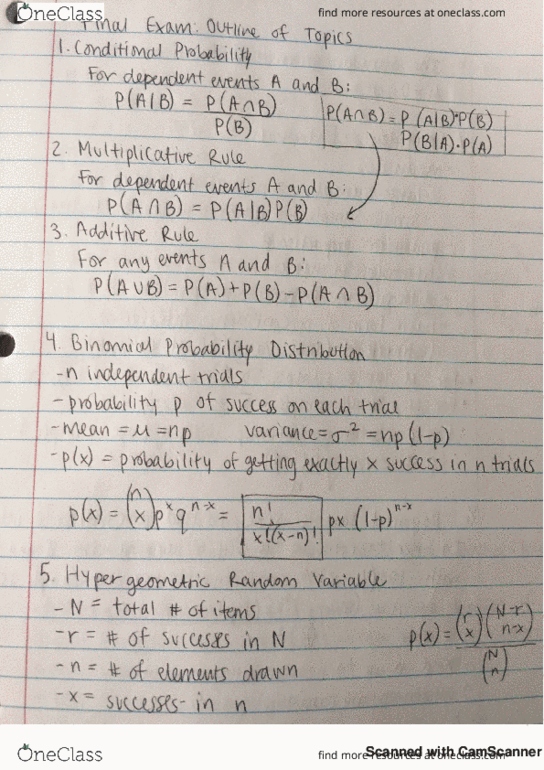 OneClass
find more resources at oneclass.com
Final Exam: Outline of Topics
1. Conditional Probability
For dependent events A and B:
P(A|B) = P(A∩B)
P(B)
P(A∩B) = P(A|B)·P(B)
P(B|A)·P(A)
2. Multiplicative Rule
For dependent events A and B:
P(A∩B) = P(A|B)P(B)
3. Additive Rule
For any events A and B:
P(A∪B) = P(A)+P(B)-P(A∩B)
4. Binomial Probability Distribution
-n independent trials
-probability p of success on each trial
-mean = μ = np variance = σ² = np(1-p)
-p(x) = probability of getting exactly x success in n trials
p(x) = (n x) p^x q^n-x = n! / x!(x-n)! px (1-p)^n-x
5. Hypergeometric Random Variable
- N = total # of items
-r = # of successes in N
-n = # of elements drawn
-x = successes in n
p(x) = (r x)(N-r n-x)
(N n)
OneClass
find more resources at oneclass.com
Scanned with CamScanner